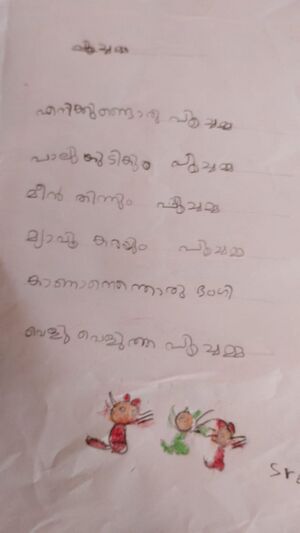 പൂച്ചമ്മ
എനിക്കുണ്ടൊരു പൂച്ചമ്മ
പാലു കുടിക്കും പൂച്ചമ്മ
മീൻ തിന്നും പൂച്ചമ്മ
മ്യാവൂ കരയും പൂച്ചമ്മ
കാണാനെന്തൊരു ഭംഗി
വെളു വെളുത്ത പൂച്ചമ്മ